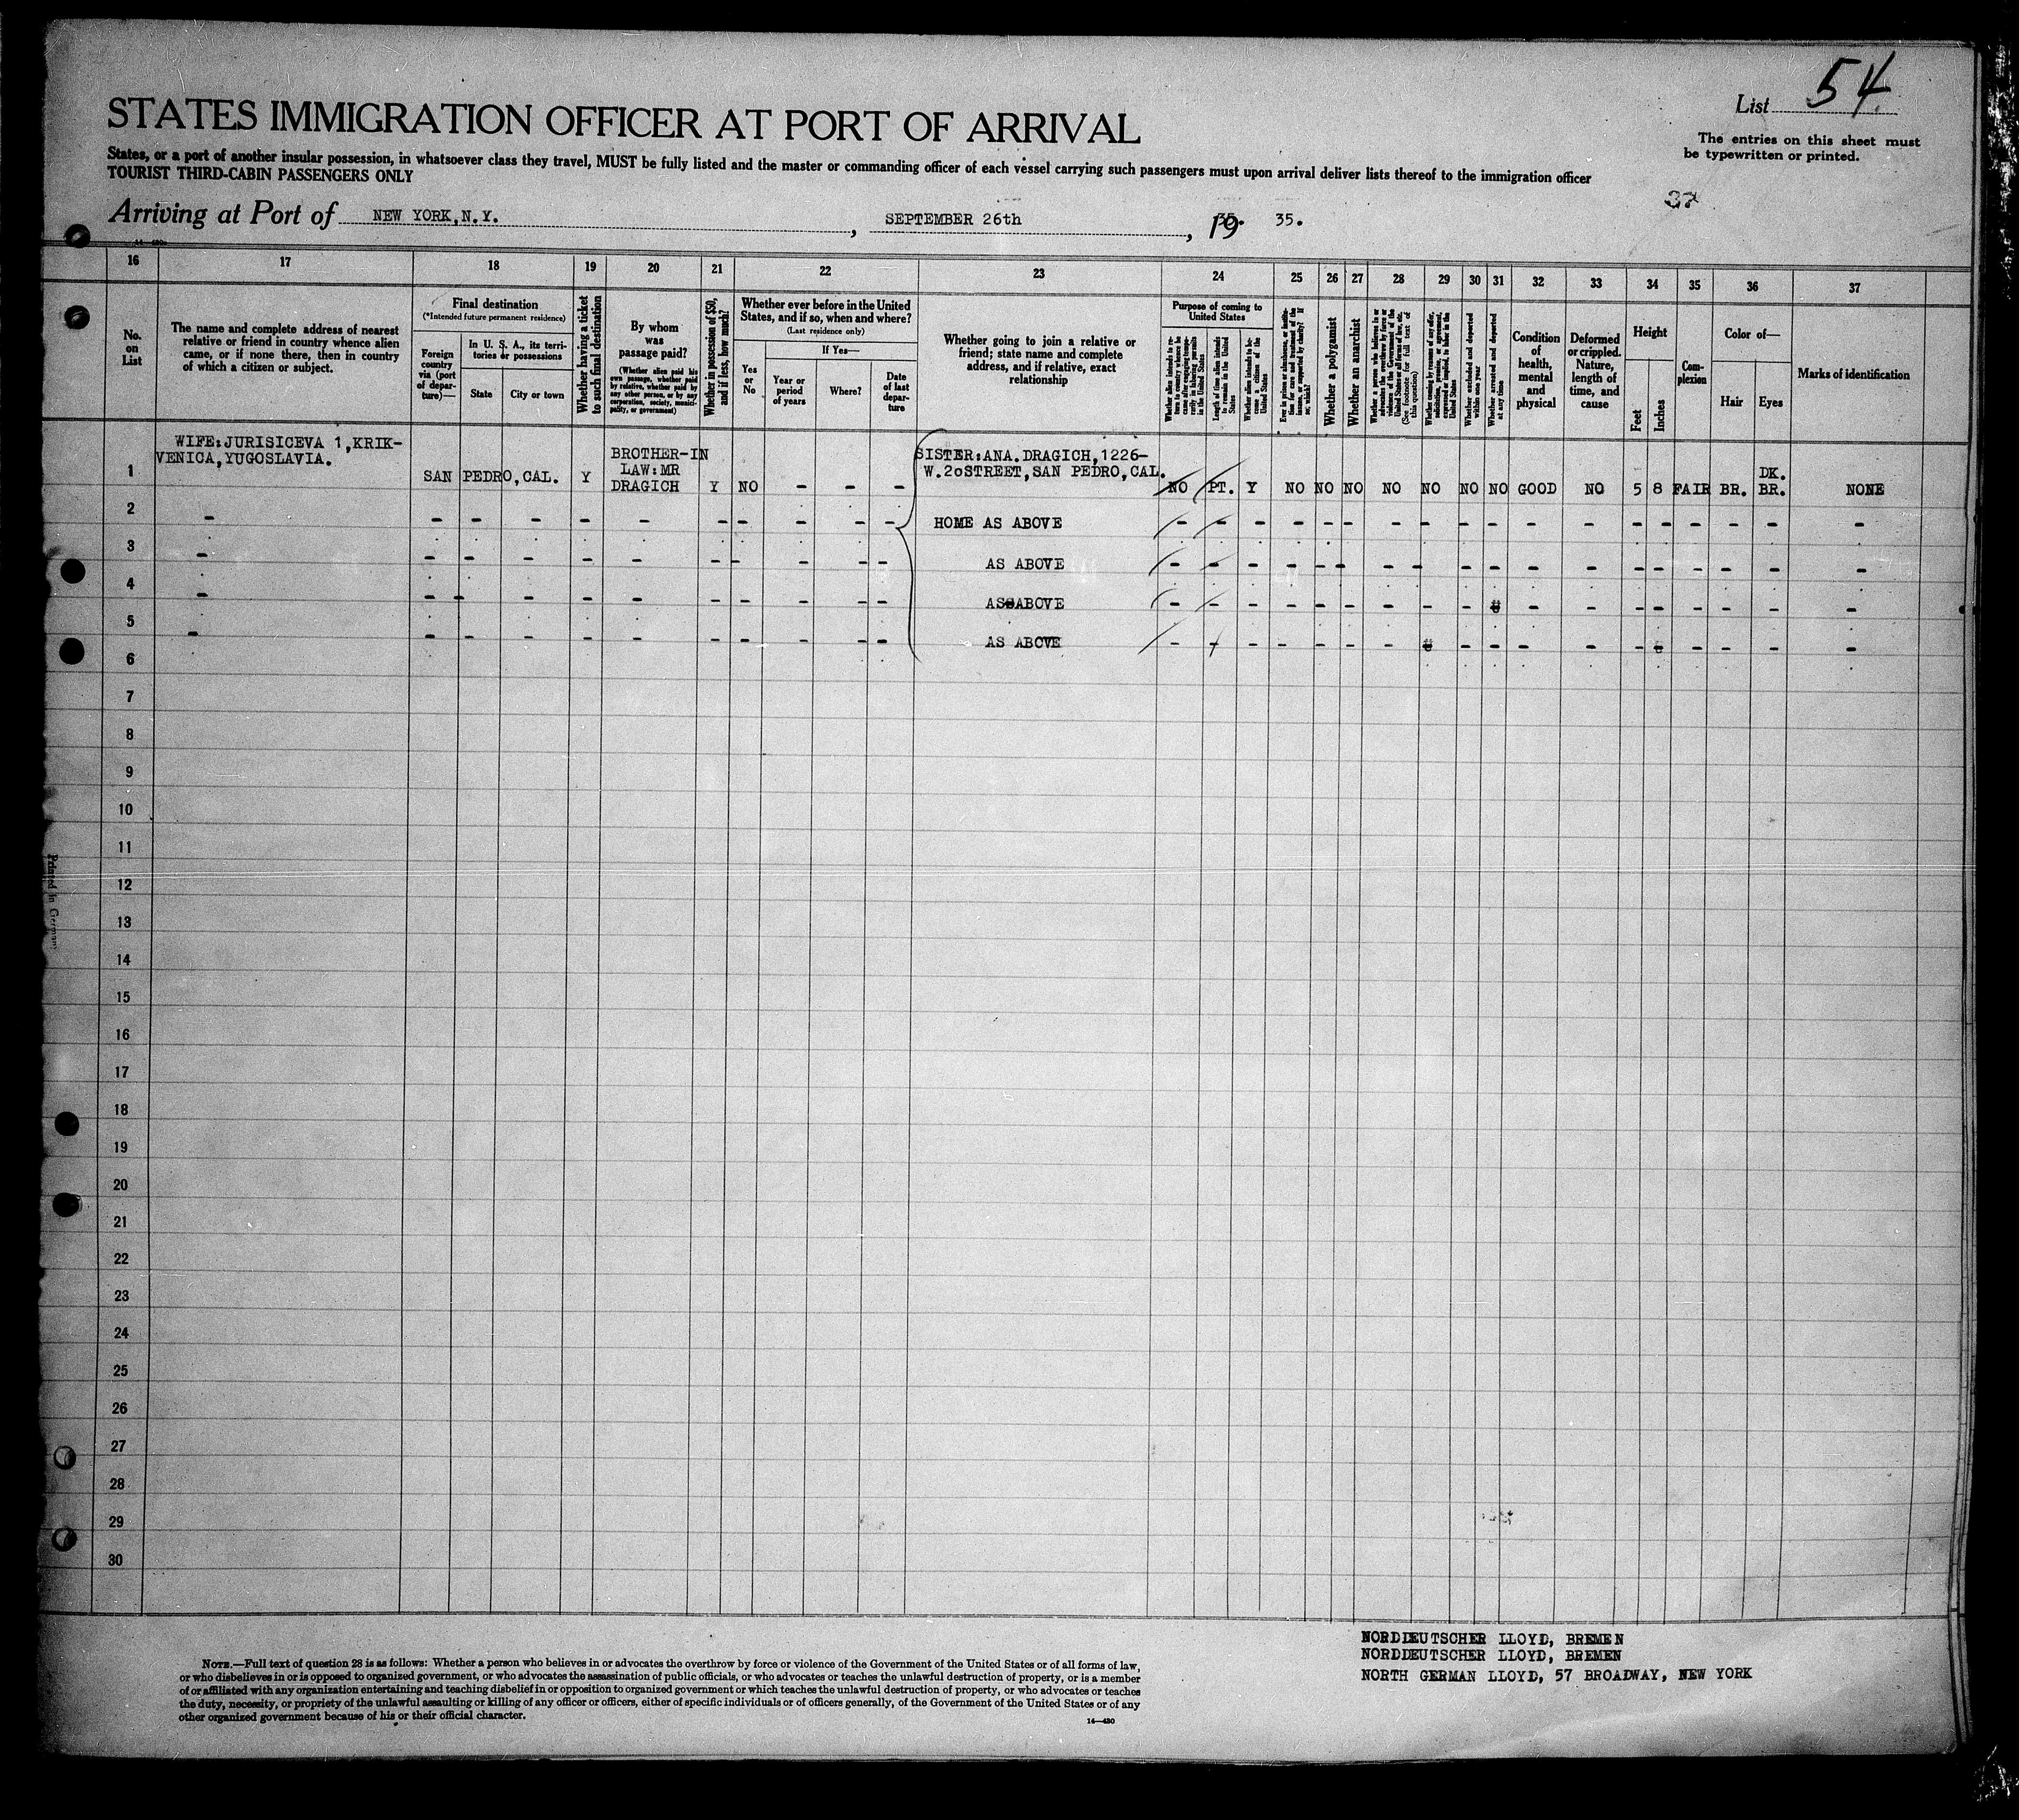 List 54
STATES IMMIGRATION OFFICER AT PORT OF ARRIVAL
The entries on this sheet must
be typewritten or printed.
States, or a port of another insular possession, in whatsoever class they travel, MUST be fully listed and the master or commanding officer of each vessel carrying such passengers must upon arrival deliver lists thereof to the immigration officer
TOURIST THIRD-CABIN PASSENGERS ONLY
37
Arriving at Port of NEW YORK, N.Y., SEPTEMBER 26th, 19 35.
16 17 18 19 20 21 22 23 24 25 26 27 28 29 30 31 32 33 34 35 36 37
No.
on
List
The name and complete address of nearest
relative or friend in country whence alien
came, or if none there, then in country
of which a citizen or subject.
Final destination
(*Intended future permanent residence)
Foreign
country
via (port
of depar-
ture)—
In U. S. A., its terri-
tories or possessions
State
City or town
Whether having a ticket
to such final destination
By whom
was
passage paid?
(Whether alien paid his
own passage, whether paid
by relative, whether paid by
any other person, or by any
corporation, society, munici-
pality, or government)
Whether in possession of $50,
and if less, how much?
Whether ever before in the United
States, and if so, when and where?
(Last residence only)
Yes
or
No
If Yes—
Year or
period
of years
Where?
Date
of last
depar-
ture
Whether going to join a relative or
friend; state name and complete
address, and if relative, exact
relationship
Purpose of coming to
United States
Whether alien intends to re-
turn to country whence he
came after engaging tempo-
rarily in laboring pursuits
in the United States
Length of time alien intends
to remain in the United
States
Whether alien intends to be-
come a citizen of the
United States
Ever in prison or almshouse, or institu-
tion for care and treatment of the
insane, or supported by charity? If
so, which?
Whether a polygamist
Whether an anarchist
Whether a person who believes in or
advocates the overthrow by force or
violence of the Government of the
United States or all forms of law, etc.
(See footnote for full text of
this question)
Whether coming by reason of any offer,
solicitation, promise, or agreement,
expressed or implied, to labor in the
United States
Whether excluded and deported
within one year
Whether arrested and deported
at any time
Condition
of
health,
mental
and
physical
Deformed
or crippled.
Nature,
length of
time, and
cause
Height
Feet
Inches
Com-
plexion
Color of—
Hair
Eyes
Marks of identification
1
WIFE:JURISICEVA 1,KRIK-
VENICA,YUGOSLAVIA.
SAN PEDRO,CAL. Y
BROTHER-IN
LAW:MR
DRAGICH Y NO - - -
SISTER:ANA.DRAGICH,1226-
W.20STREET,SAN PEDRO,CAL.
NO PT. Y NO NO NO NO NO NO NO GOOD NO 5 8 FAIR BR. DK.
BR. NONE
2 - - - - - - - - - - - HOME AS ABOVE - - - - - - - - - - - - - - - - - -
3 - - - - - - - - - - - AS ABOVE - - - - - - - - - - - - - - - - - -
4 - - - - - - - - - - - AS ABOVE - - - - - - - - - - - - - - - - -
5 - - - - - - - - - - - AS ABOVE - - - - - - - - - - - - - - - -
6
7
8
9
10
11
12
13
14
15
16
17
18
19
20
21
22
23
24
25
26
27
28
29
30
Printed in Germany
NORDDEUTSCHER LLOYD, BREMEN
NORDDEUTSCHER LLOYD, BREMEN
NORTH GERMAN LLOYD, 57 BROADWAY, NEW YORK
NOTE.—Full text of question 28 is as follows: Whether a person who believes in or advocates the overthrow by force or violence of the Government of the United States or of all forms of law,
or who disbelieves in or is opposed to organized government, or who advocates the assassination of public officials, or who advocates or teaches the unlawful destruction of property, or is a member
of or affiliated with any organization entertaining and teaching disbelief in or opposition to organized government or which teaches the unlawful destruction of property, or who advocates or teaches
the duty, necessity, or propriety of the unlawful assaulting or killing of any officer or officers, either of specific individuals or of officers generally, of the Government of the United States or of any
other organized government because of his or their official character.
14—430